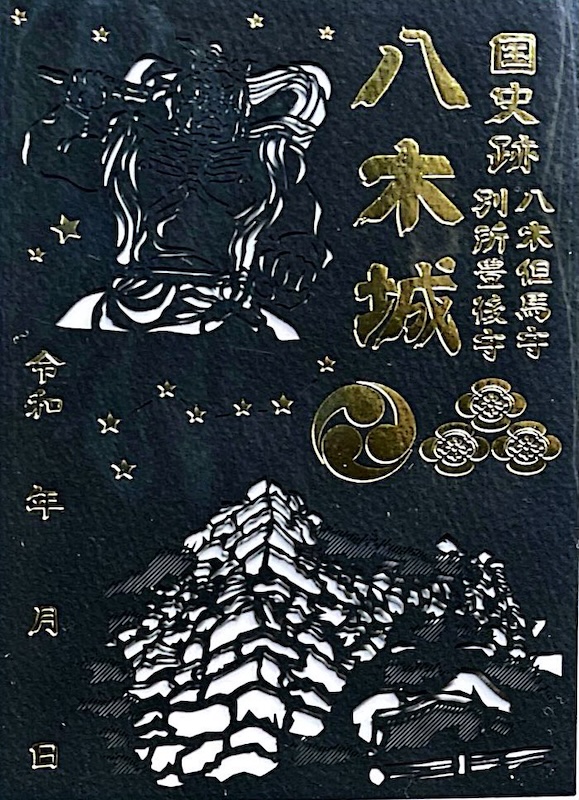 国史跡
八木但馬守
別所豊後守
八木城
令和
年
月
日